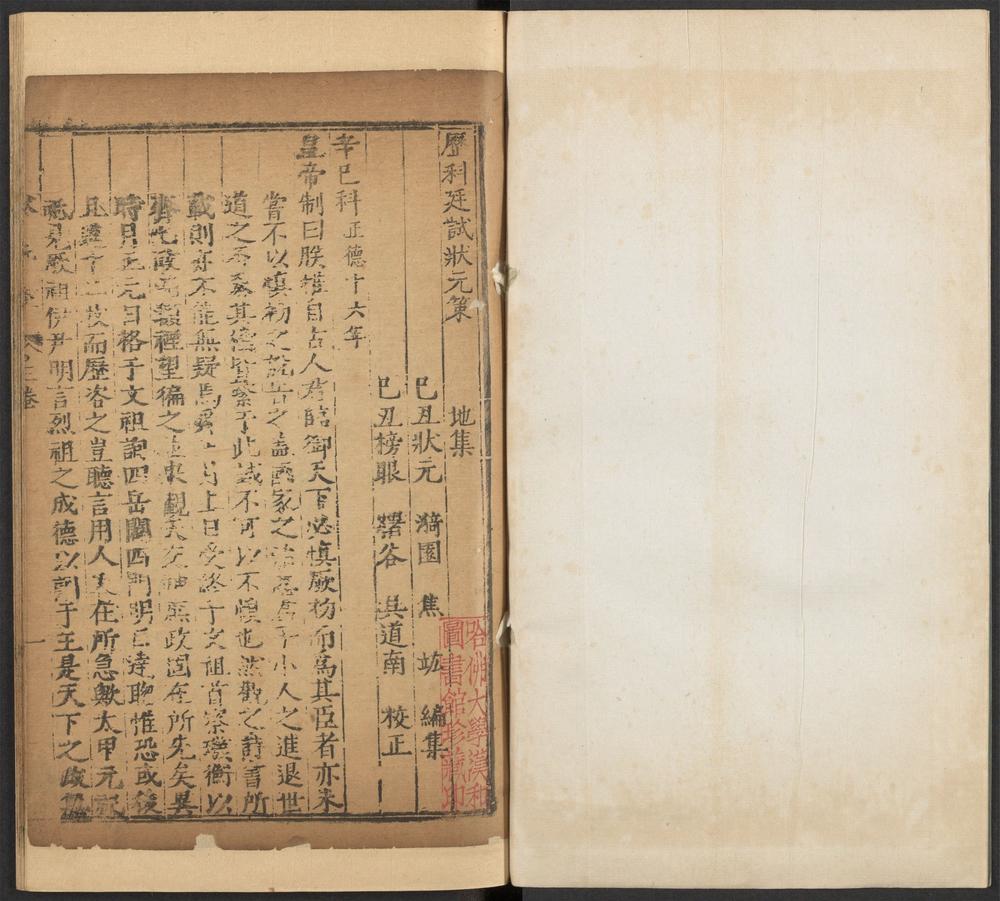 歷科廷試狀元策 地集
巳丑狀元 漪園 焦 竑 編集
巳丑榜眼 曙谷 吳道南 校正
辛巳科 正德十六年
皇帝制曰朕惟自古人君臨御天下必慎厥初而爲其臣者亦未
嘗不以慎初之說告之蓋國家之治忽君子小人之進退世
道之否泰其幾皆繫于此誠不可以不慎也然觀之詩書所
載則亦不能無疑焉舜正月上日受終于文祖首察璣衡以
齊七政而類禋望徧之並東覲天交神無政固在所先矣異
時月正元日格于文祖詢四岳闢四門明目達聰惟恐或後
且達十二牧而歷咨之豈聽言用人又在所急歟太甲元祀
祗見厥祖伊尹明言烈祖之成德以訓于王是天下之政
一
哈佛大學漢和
圖書館珍藏印